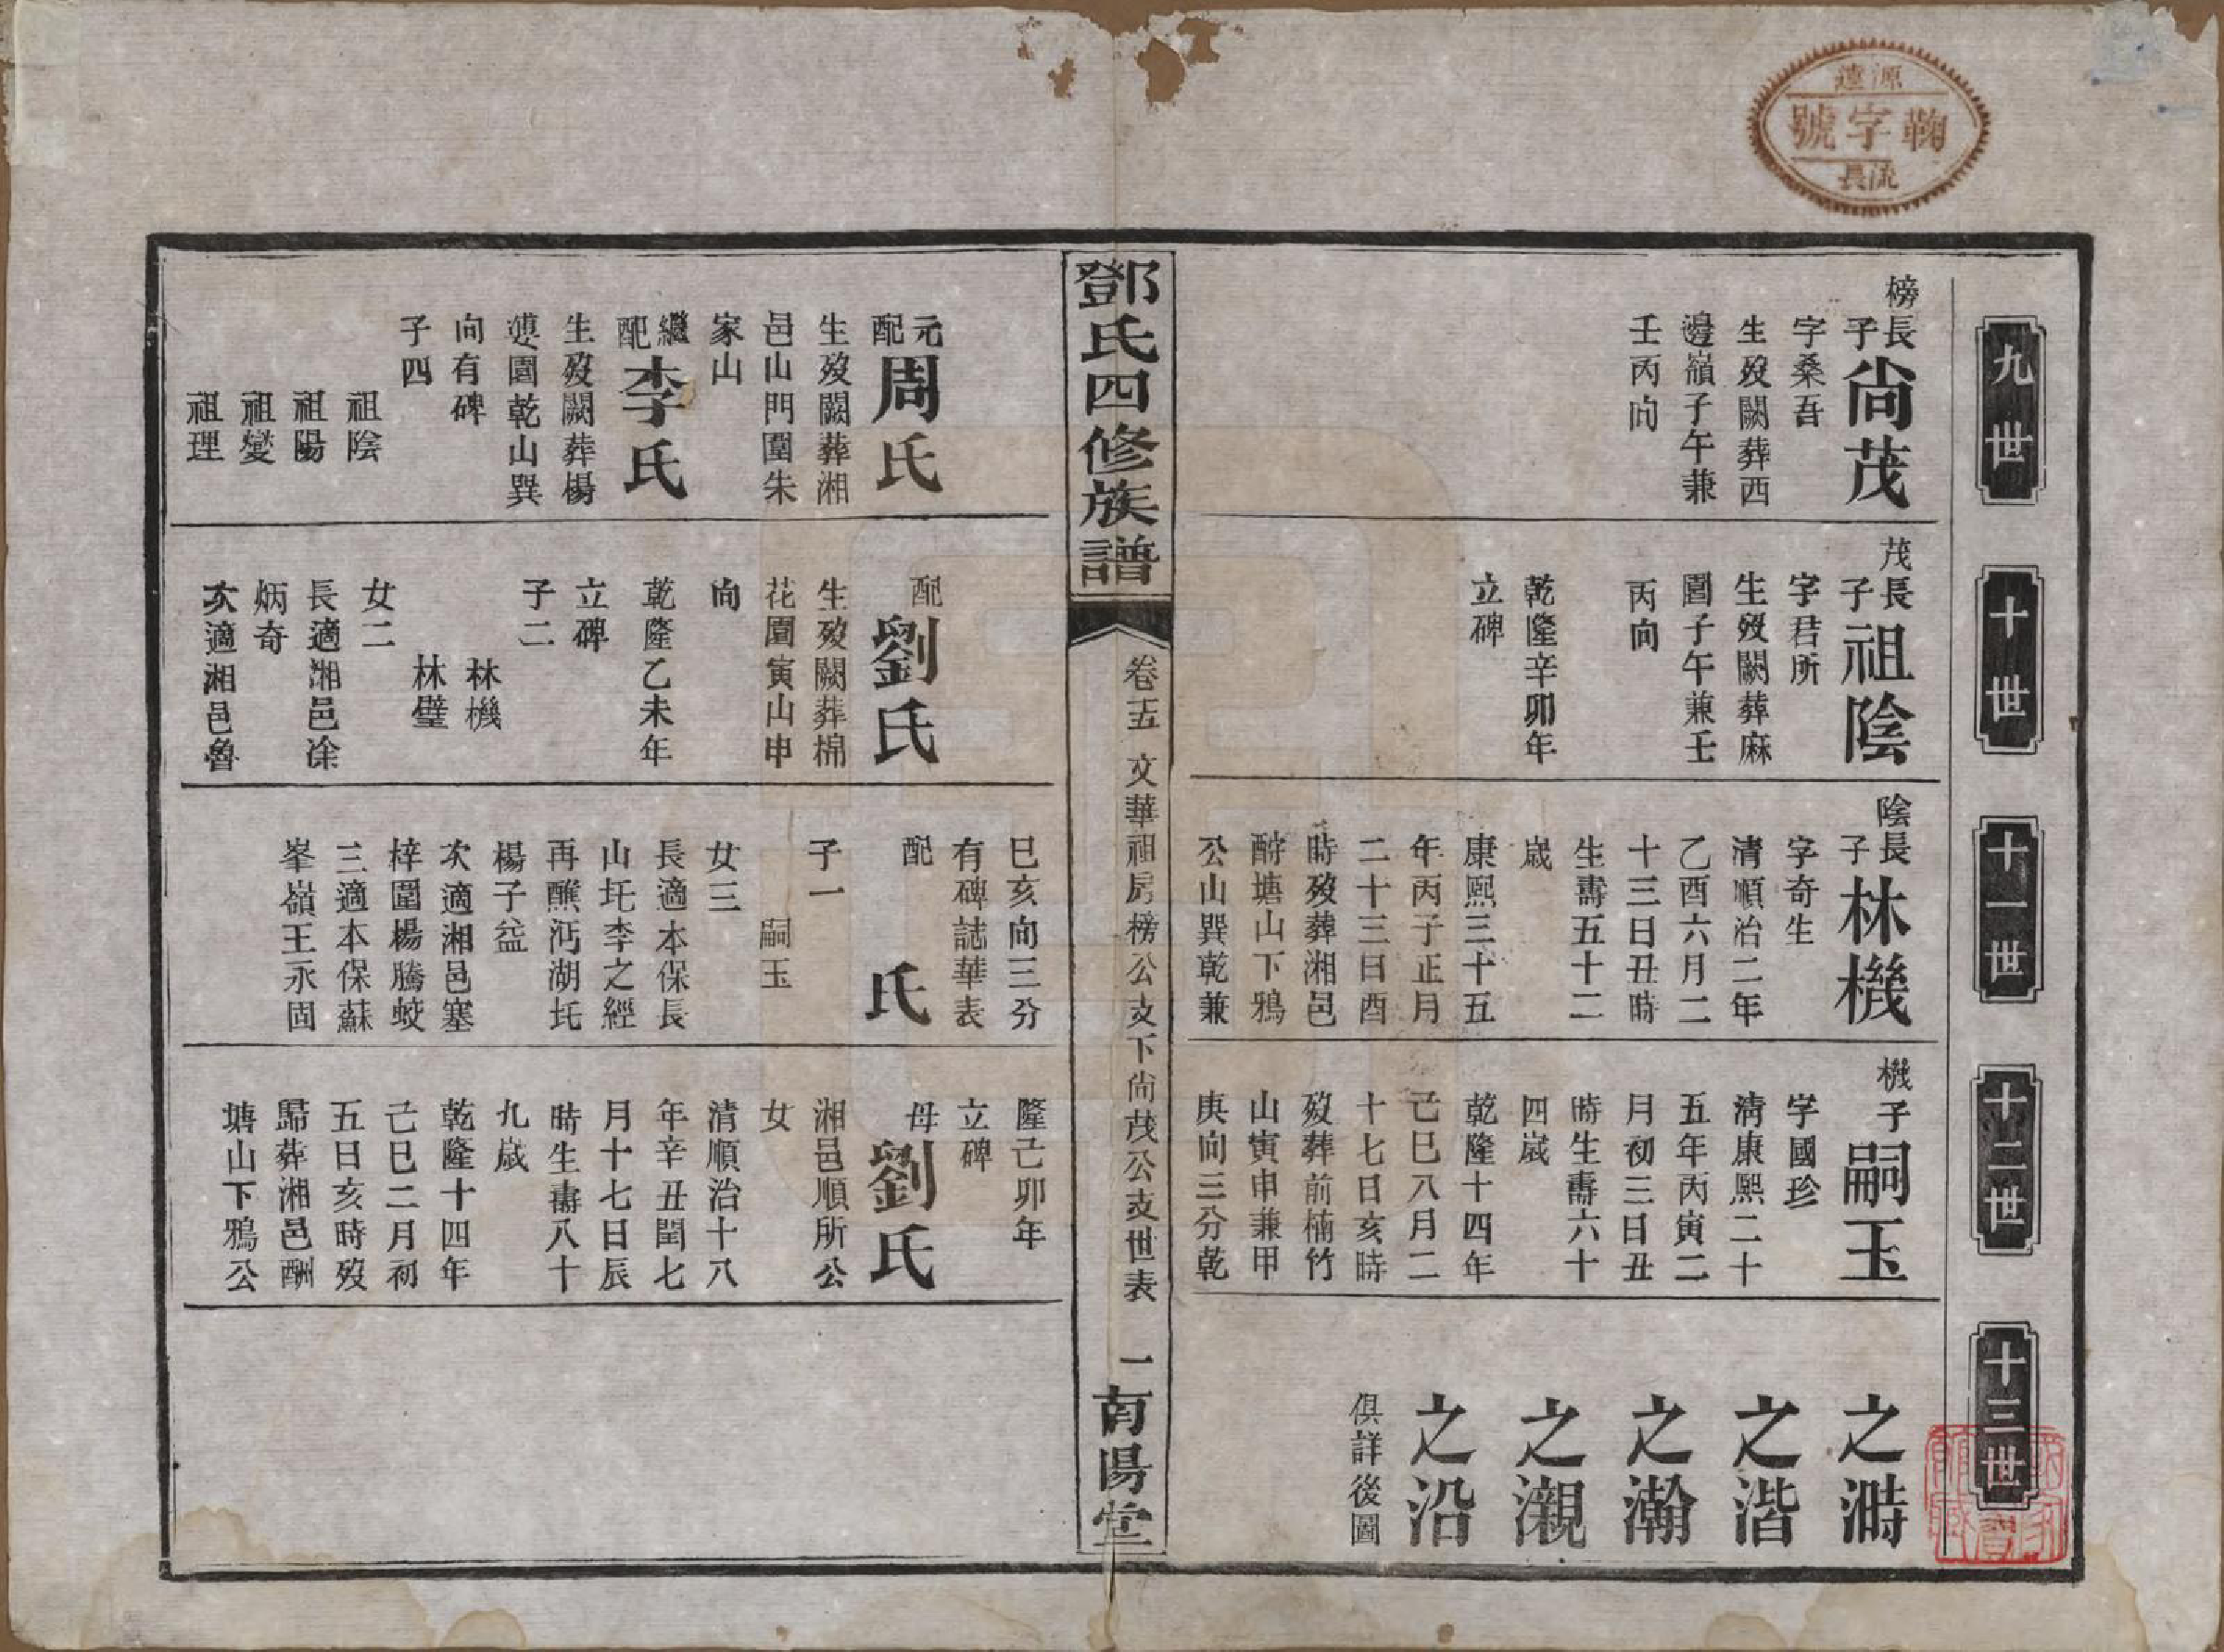 源遠
鞠字號
流長
九世
十世
十一世
十二世
十三世
榜長子
尚茂
字桑吾
生歿闕葬西
邊嶺子午兼
壬丙向
茂長子
祖陰
字君所
生歿闕葬麻
園子午兼壬
丙向
乾隆辛卯年
立碑
陰長子
林機
字奇生
清順治二年
乙酉六月二
十三日丑時
生壽五十二
歲
康熙三十五
年丙子正月
二十三日酉
時歿葬湘邑
酧塘山下鴉
公山巽乾兼
機子
嗣玉
字國珍
清康熙二十
五年丙寅二
月初三日丑
時生壽六十
四歲
乾隆十四年
己巳八月二
十七日亥時
歿葬前楠竹
山寅申兼甲
庚向三分乾
之溡
之湝
之瀚
之瀙
之沿
俱詳後圖
鄧氏四修族譜
卷十五 文華祖房榜公支下尚茂公支世表 一
南陽堂
元配
周氏
生歿闕葬湘
邑山門圍朱
家山
繼配
李氏
生歿闕葬楊
塽園乾山巽
向有碑
子四
祖陰
祖陽
祖燮
祖理
配
劉氏
生歿闕葬棉
花園寅山申
向
乾隆乙未年
立碑
子二
林機
林璧
女二
長適湘邑凃
炳奇
次適湘邑魯
巳亥向三分
有碑誌華表
配 氏
子一
嗣玉
女三
長適本保長
山圫李之經
再醮沔湖圫
楊子益
次適湘邑塞
梓圍楊騰蛟
三適本保蘇
峯嶺王永固
隆己卯年
立碑
母
劉氏
湘邑順所公
女
清順治十八
年辛丑閏七
月十七日辰
時生壽八十
九歲
乾隆十四年
己巳二月初
五日亥時歿
歸葬湘邑酬
塘山下鴉公